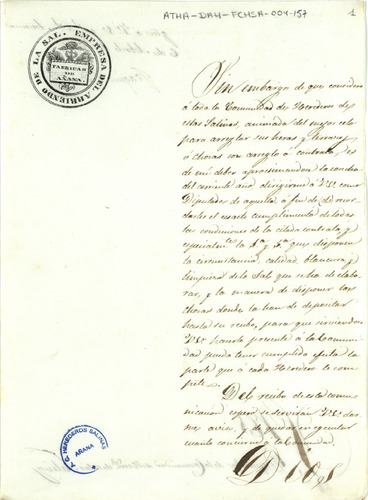 ATHA-DAH-FCHSA-004-157
1
EMPRESA DEL ARRIENDO DE LA SAL.
FABRICAS
DE
AÑANA.
Sin embargo de que considero
á toda la Comunidad de Herederos de
estas Salinas, animada del mejor celo
para arreglar sus heras y terrazos
ó choras con arreglo á contrata, es
de mi deber aprocsimandose la
del corriente año dirigirme á VSS. como
Diputados de aquella á fin de
darles el esacto cumplimiento de todas
las condiciones de la citada contrata, y
especialmte. la 4ª y 5ª que disponen
la circunstancia, calidad blancura y
limpieza de la Sal que se ha de elabo-
rar, y la manera de disponer las
choras donde la han de depositar
hasta su recibo, para que sirviendose
VSS. hacerlo presente á la Comuni-
dad pueda tener cumplido efecto la
parte que á cada Heredero le com-
pete.
Del recibo de esta comu-
nicacion espero se servirán VSS. dar-
me aviso, y de quedar en egecutar
cuanto concierne á la Comunidad.
Dios
C. G. HEREDEROS SALINAS
AÑANA